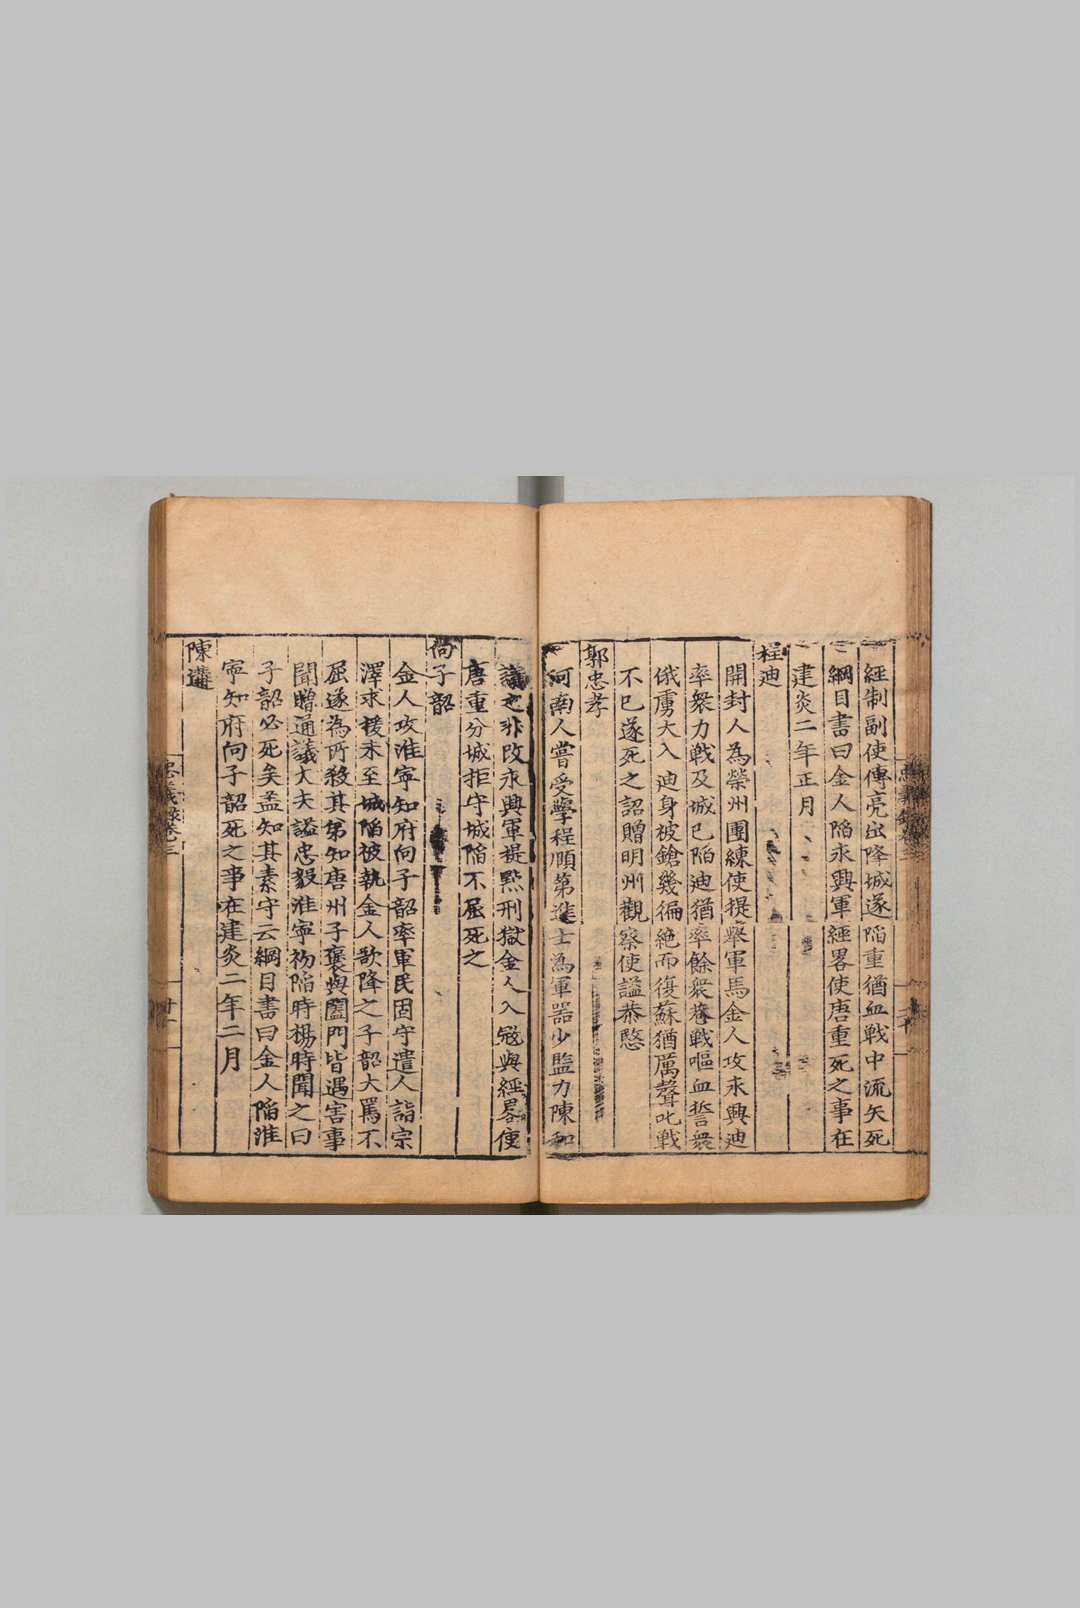 經制副使傳亮出降城遂陷重猶血戰中流矢死
綱目書曰金人陷永興軍經畧使唐重死之事在
建炎二年正月
程迪
開封人為榮州團練使提舉軍馬金人攻永興迪
率衆力戰及城已陷迪猶率餘衆巷戰嘔血誓衆
俄虜大入迪身被鎗幾徧絶而復蘇猶厲聲叱戰
不已遂死之詔贈明州觀察使謚恭愍
郭忠孝
河南人嘗受學程頤第進士為軍器少監力陳和
議之非改永興軍提點刑獄金人入冦與經畧使
唐重分城拒守城陷不屈死之
向子韶
金人攻淮寧知府向子韶率軍民固守遣人詣宗
澤求援未至城陷被執金人欲降之子韶大罵不
屈遂為所殺其弟知唐州子褒與闔門皆遇害事
聞贈通議大夫謚忠毅淮寧初陷時楊時聞之曰
子韶必死矣盖知其素守云綱目書曰金人陷淮
寧知府向子韶死之事在建炎二年二月
陳遘
忠義錄卷之三